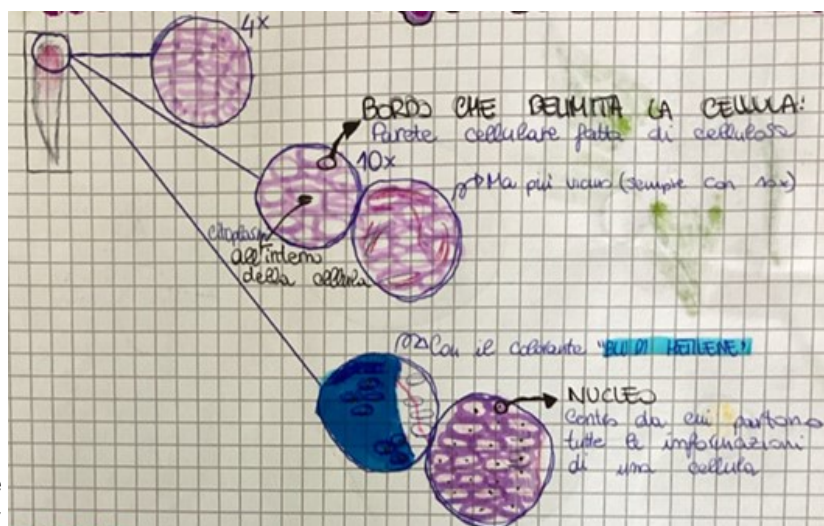 4x
BORDO CHE DELIMITA LA CELLULA:
Parete cellulare fatta di cellulosa
10x
Ma più vicino (sempre con 10x)
citoplasma
all'interno
della cellula
Con il colorante "BLU DI METILENE"
NUCLEO
Centro da cui partono
tutte le informazioni
di una cellula